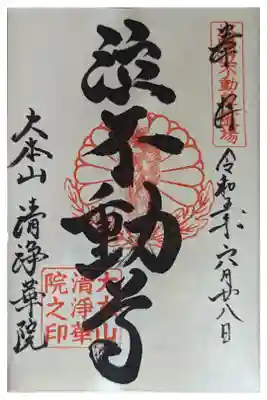 奉拝
令和五年六月廿八日
泣不動尊
大本山 清浄華院
大本山
清浄華
院之印